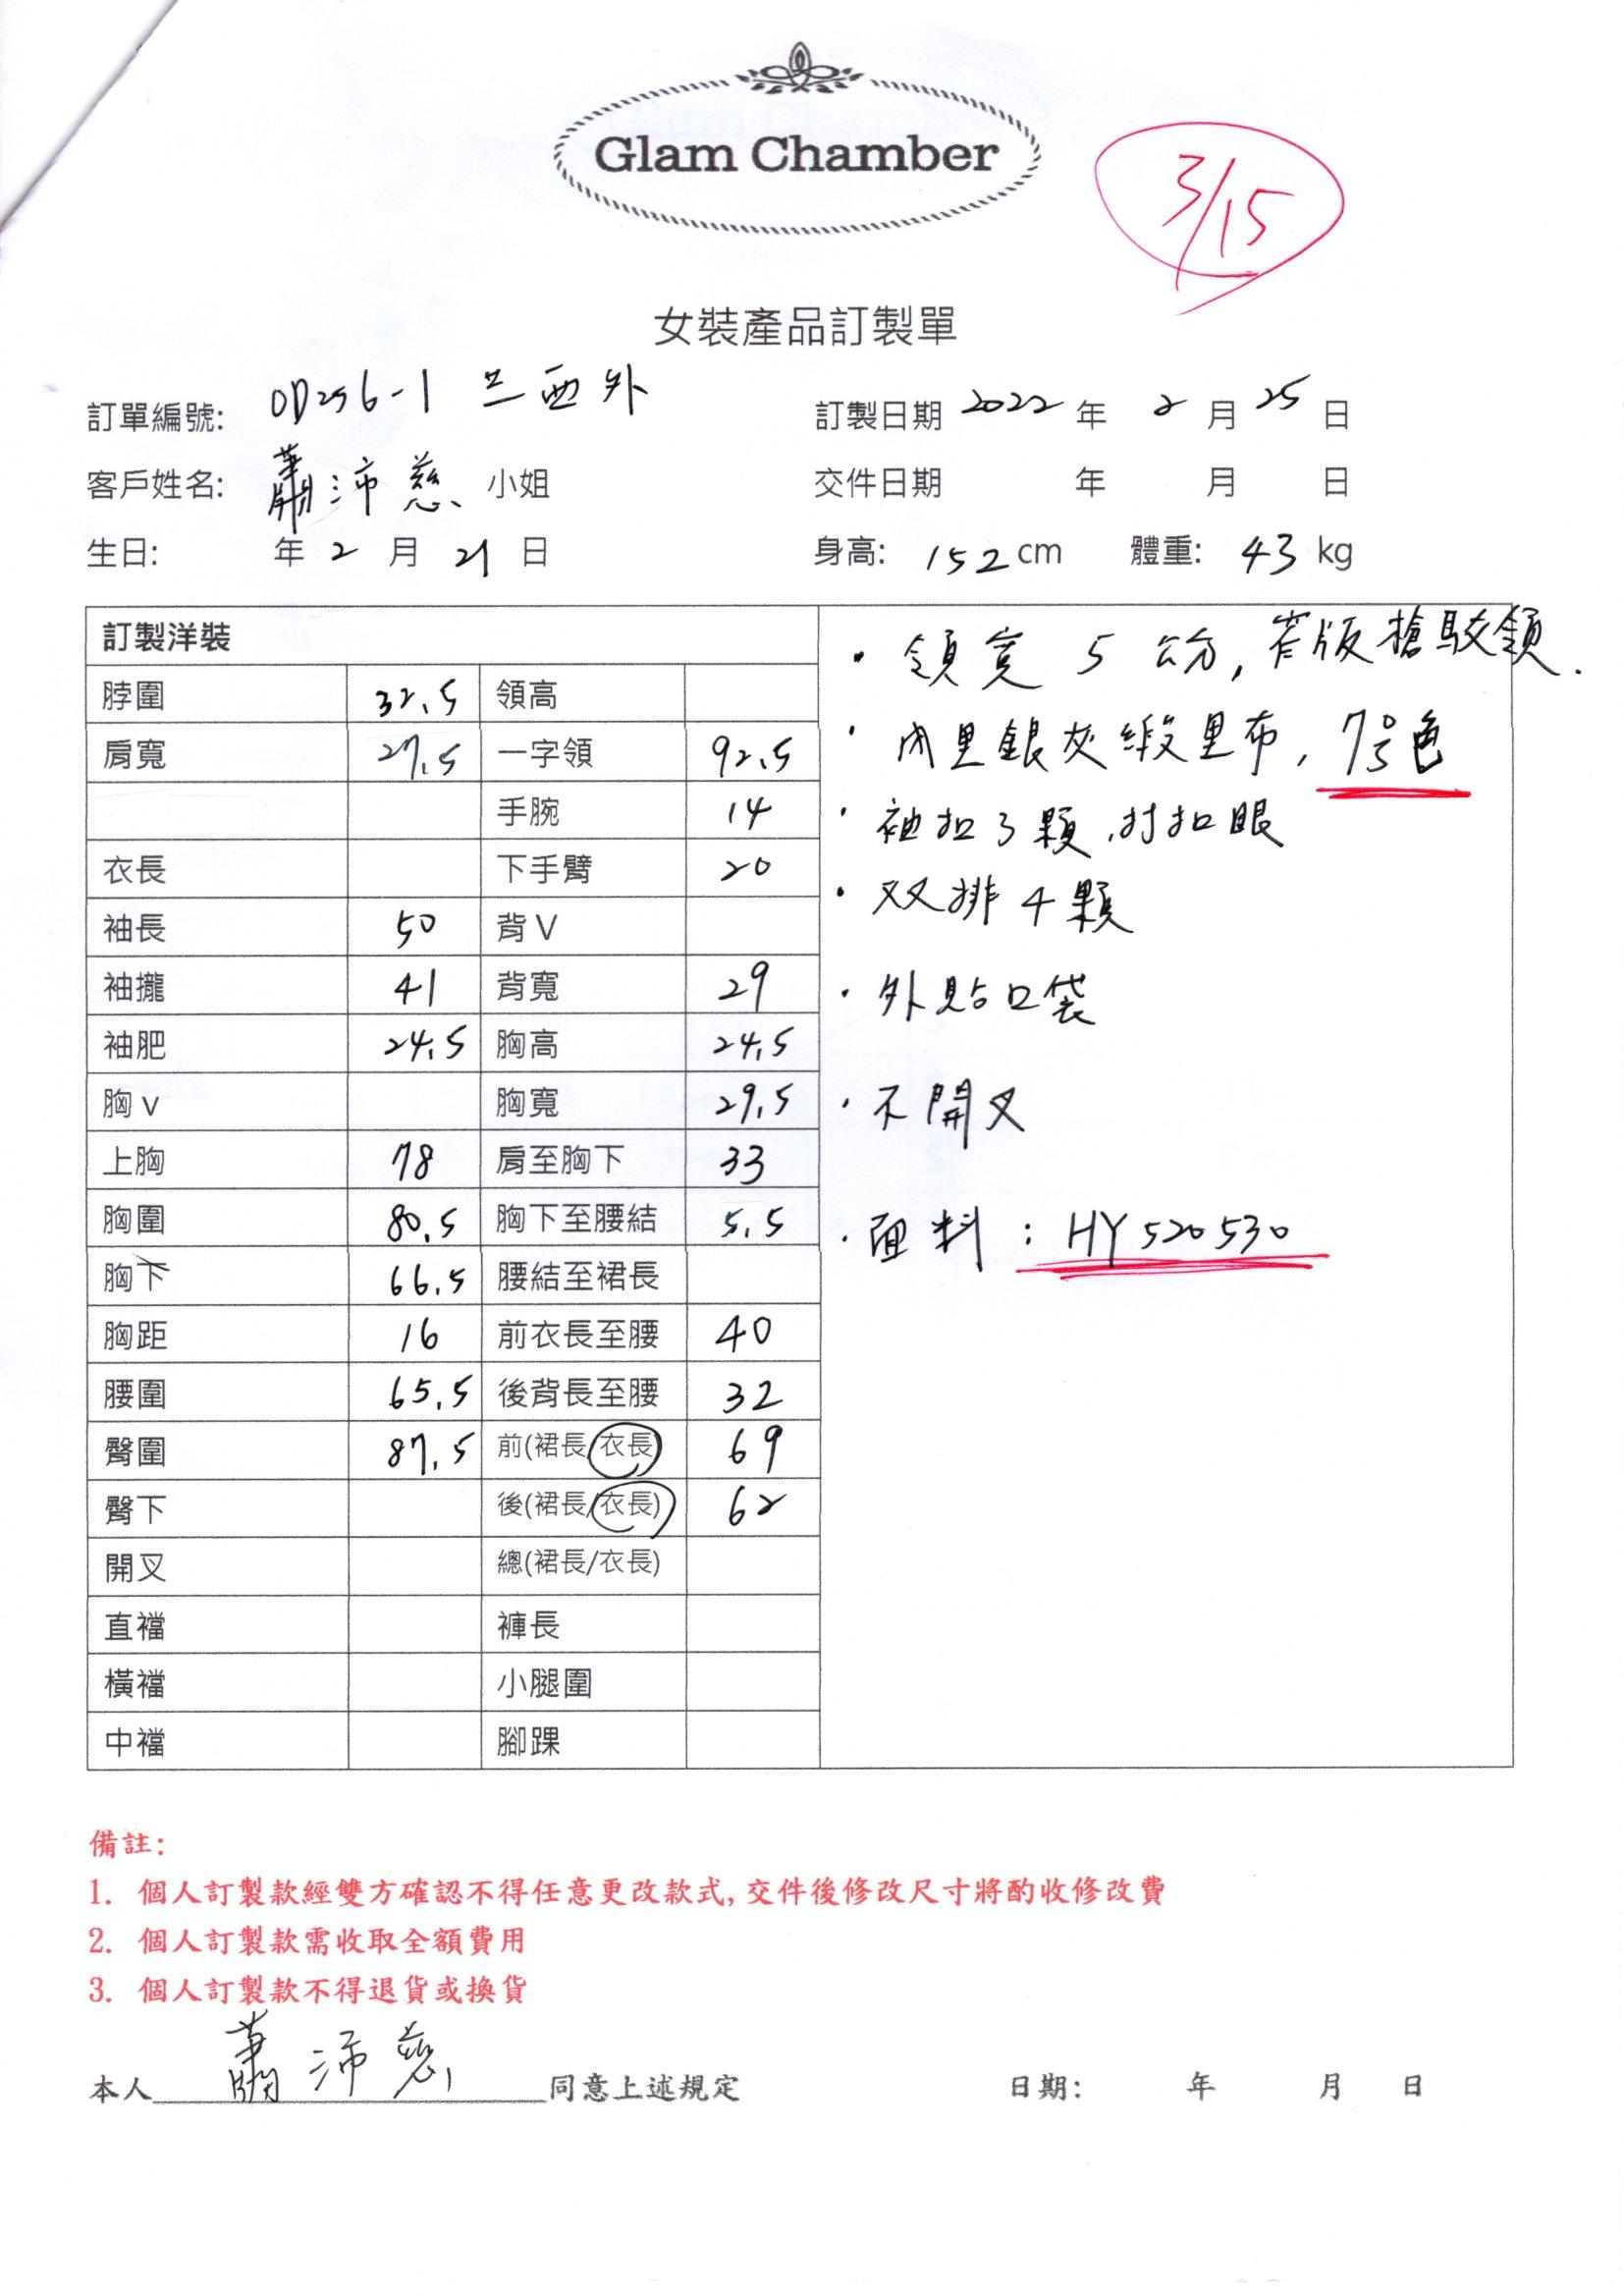 Glam Chamber
3/15
女裝產品訂製單
訂單編號: OD256-1 兰西外 訂製日期 2022 年 2 月 25 日
客戶姓名: 蕭沛慈 小姐 交件日期 年 月 日
生日: 年 2 月 21 日 身高: 152 cm 體重: 43 kg
訂製洋裝
脖圍 32.5 領高
肩寬 27.5 一字領 92.5
手腕 14
衣長 下手臂 20
袖長 50 背V
袖攏 41 背寬 29
袖肥 24.5 胸高 24.5
胸v 胸寬 29.5
上胸 78 肩至胸下 33
胸圍 80.5 胸下至腰結 5.5
胸下 66.5 腰結至裙長
胸距 16 前衣長至腰 40
腰圍 65.5 後背長至腰 32
臀圍 87.5 前(裙長/衣長) 69
臀下 後(裙長/衣長) 62
開叉 總(裙長/衣長)
直襠 褲長
橫襠 小腿圍
中襠 腳踝
· 領寬 5 公分, 窄版槍駁領.
· 內里銀灰緞里布, 7号色
· 袖扣3顆,打扣眼
· 双排4顆
· 外貼口袋
· 不開叉
· 面料: HY520530
備註:
1. 個人訂製款經雙方確認不得任意更改款式,交件後修改尺寸將酌收修改費
2. 個人訂製款需收取全額費用
3. 個人訂製款不得退貨或換貨
本人 蕭沛慈 同意上述規定 日期: 年 月 日